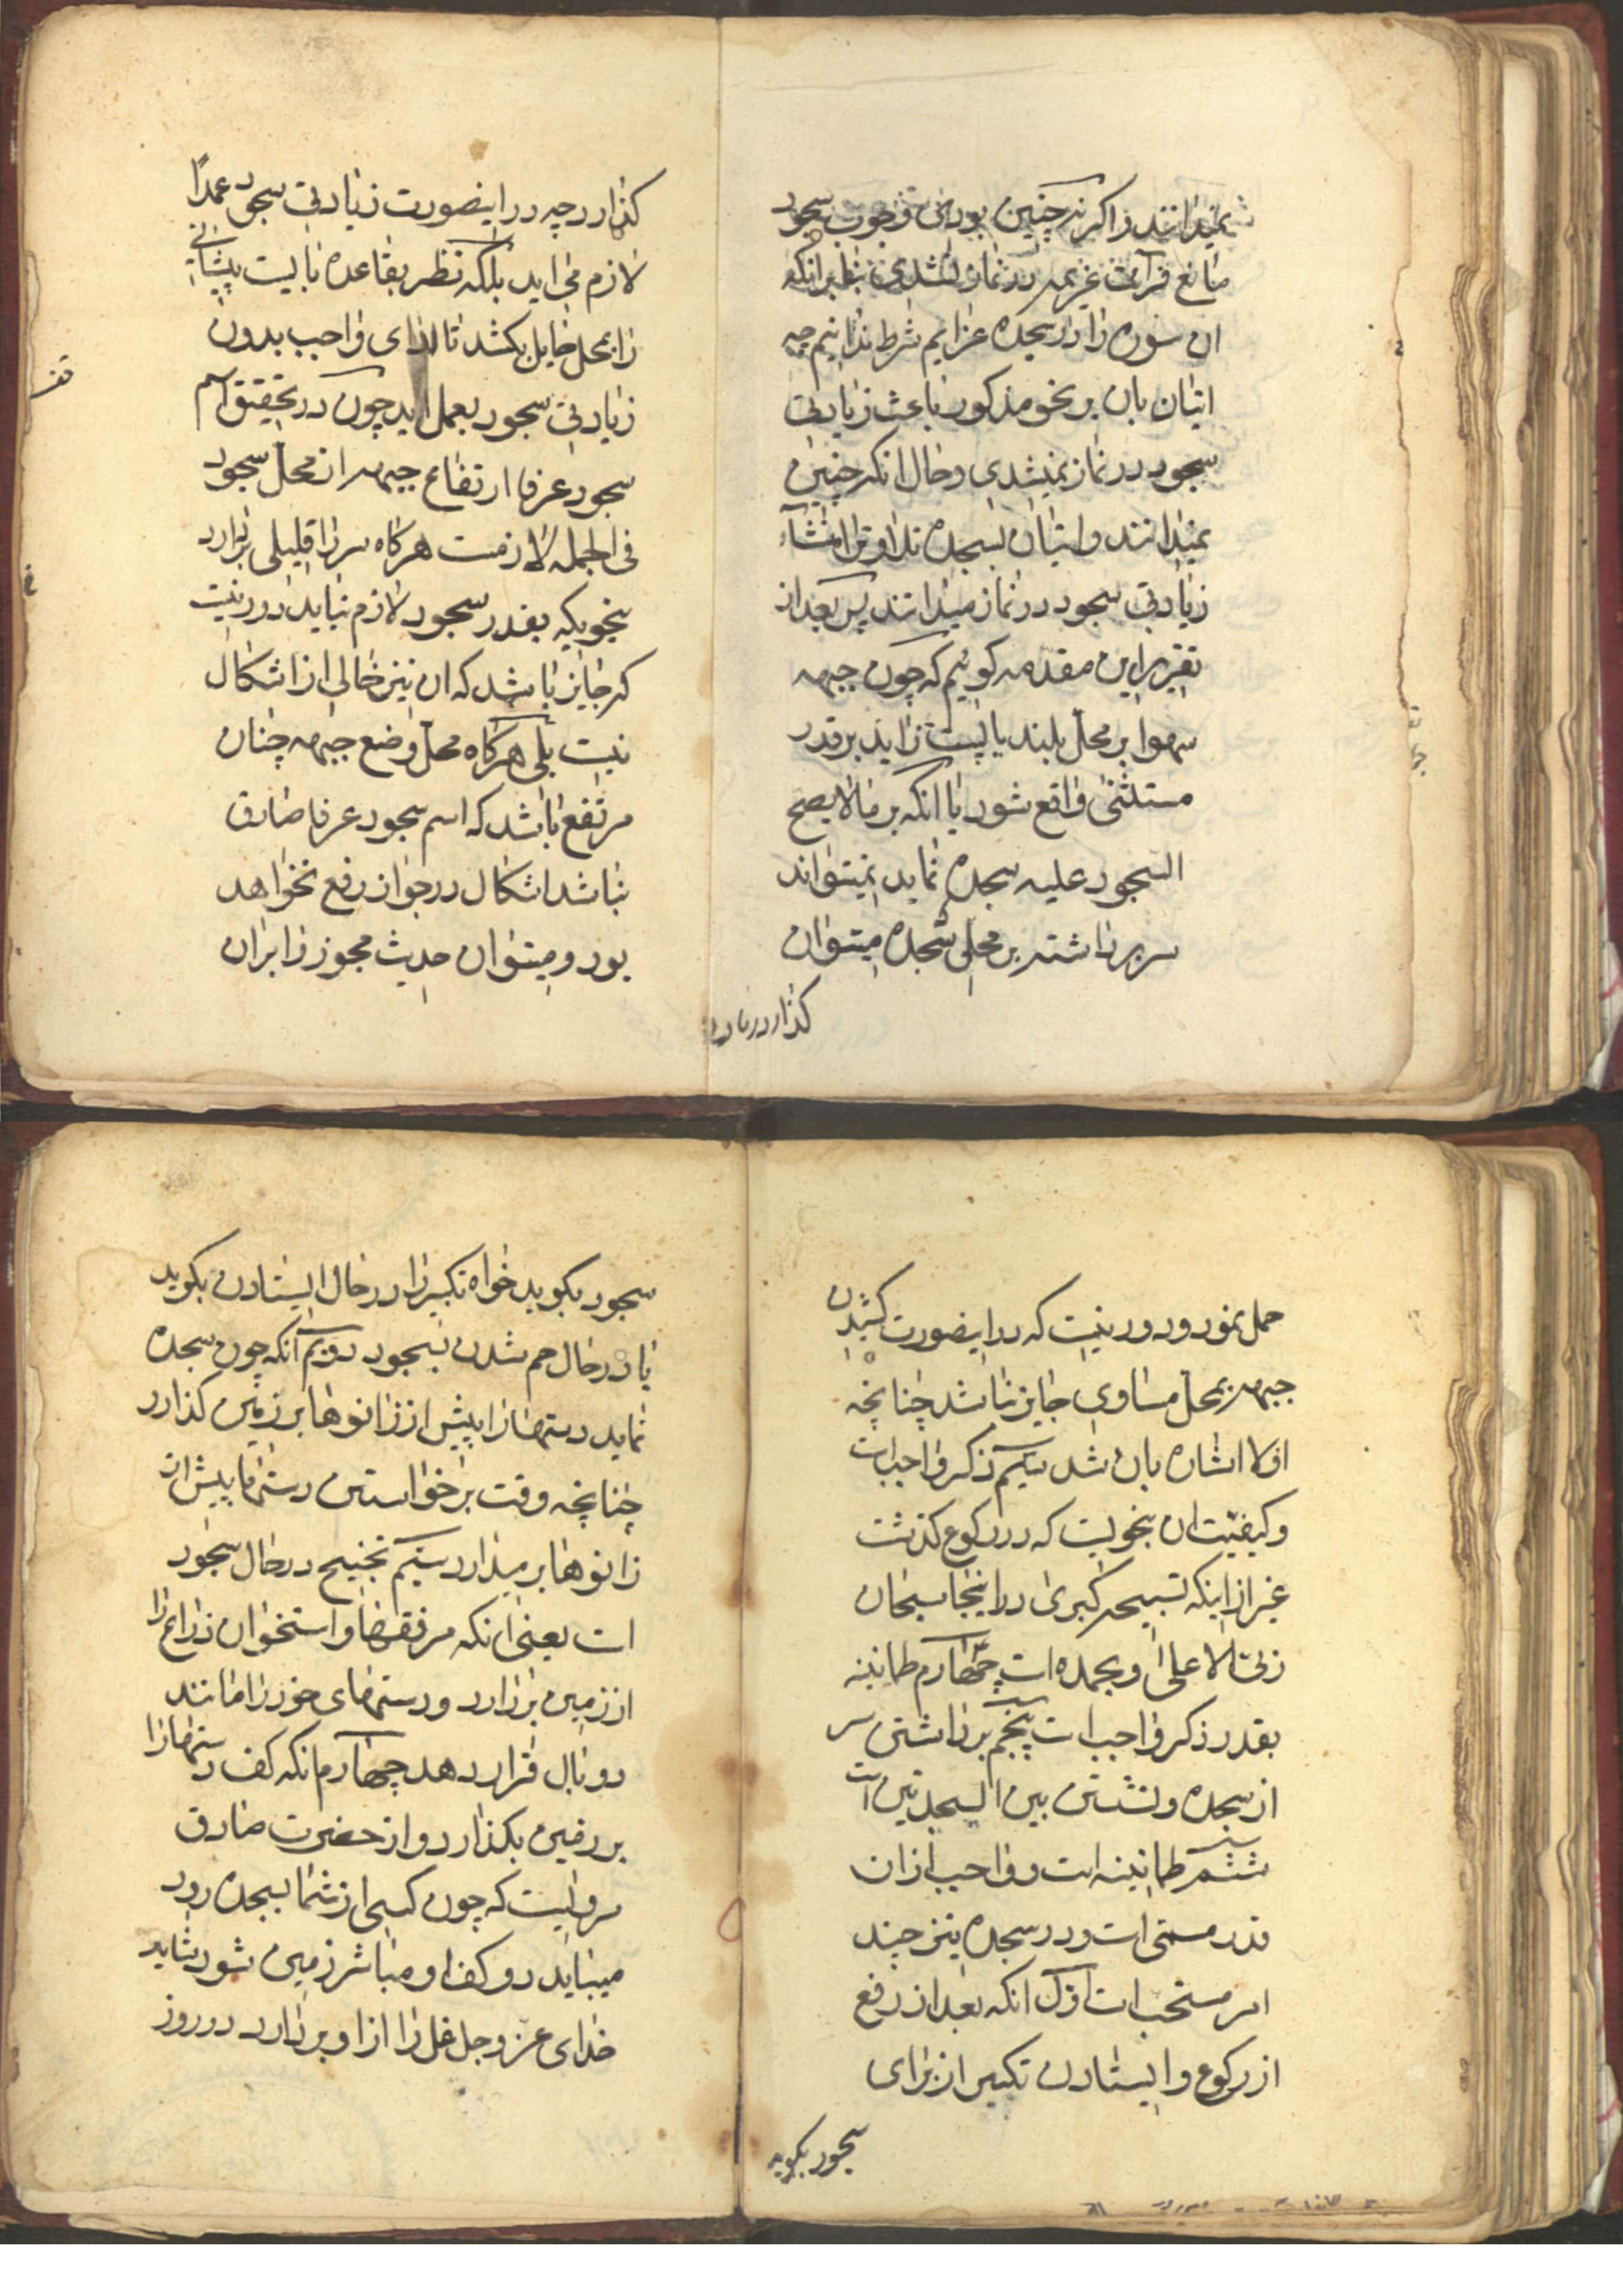 نمیدانند و اگر نه چنین بودی وجوب سجود
مانع قرآئت عزیمه در نماز نشدی بنابر آنکه
ان سوره را در سجده عزایم شرط ندانیم چه
اتیان بان بر نحو مذکور باعث زیادتی
سجود در نماز نمیشدی و حال انکه چنین
نمیدانند و اتیان بسجده تلاوترا منشآء
زیادتی سجود در نماز میدانند پس بعد از
تقریر این مقدمه کوئیم که چون جبهه
سهوا بر محل بلند یا پست زاید بر قدر
مستثنی واقع شود یا انکه بر مالا یصح
السجود علیه سجده نماید نمیتواند
سر برداشته بر محلی سجده میتوان
کذارد
کذارد چه در اینصورت زیادتی سجود عمدًا
لازم می اید بلکه نظر بقاعده بایست پیشانی
را بمحل جایز بکشد تا ادای واجب بدون
زیادتی سجود بعمل اید چون در تحقیق اسم
سجود عرفا ارتفاع جبهه از محل سجود
فی الجمله لازمست هرکاه سر را قلیلی بردارد
بنحویکه بقدر سجود لازم نیاید دور نیت
که جایز باشد که ان نیز خالی از اشکال
نیت بلی هرکاه محل وضع جبهه چنان
مرتفع باشد که اسم سجود عرفا صادق
نباشد اشکال در جواز رفع نخواهد
بود و میتوان حدیث مجوز را بران
حمل نمود و دور نیت که در اینصورت کشیدن
جبهه بمحل مساوی جایز نباشد چنانچه
اولا اشاره بان شد سیم ذکر واجب است
و کیفیت ان بنحویست که در رکوع کذشت
غیر از اینکه تسبیحه کبری در اینجا سبحان
ربی الاعلی و بحمده است چهارم طمانینه
بقدر ذکر واجب است پنجم برداشتن سر
از سجده و نشستن بین السجدتین است
ششم طمانینه است و واجب ازان
قدر مسمی است و در سجده نیز چند
امر مستحب است اول انکه بعد از رفع
از رکوع و ایستادن تکبیر از برای
سجود بکوید
سجود بکوید خواه تکبیر را در حال ایستادن بکوید
یا در حال خم شدن بسجود دویم انکه چون سجده
نماید دستها را پیش از زانوها بر زمین کذارد
چنانچه وقت برخواستن دستها پیش از
زانوها برمیدارد سیم تجنیح در حال سجود
است یعنی انکه مرفقها و استخوان ذراع را
از زمین بردارد و دستهای خود را مانند
دو بال قرار دهد چهارم انکه کف دستها را
بر زمین بکذارد و از حضرت صادق
مرویست که چون کسی از شما بسجده رود
میباید دو کف او مباشر زمین شود شاید
خدای عز و جل غل را از او بردارد در روز